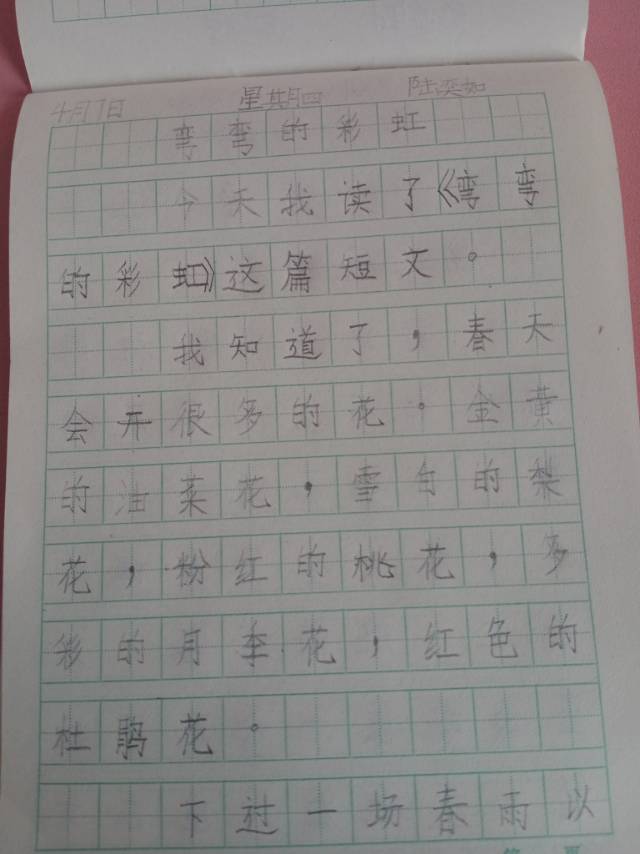 4月7日 星期四 陆奕如
弯弯的彩虹
今天我读了《弯弯
的彩虹》这篇短文。
我知道了，春天
会开很多的花。金黄
的油菜花，雪白的梨
花，粉红的桃花，多
彩的月季花，红色的
杜鹃花。
下过一场春雨以